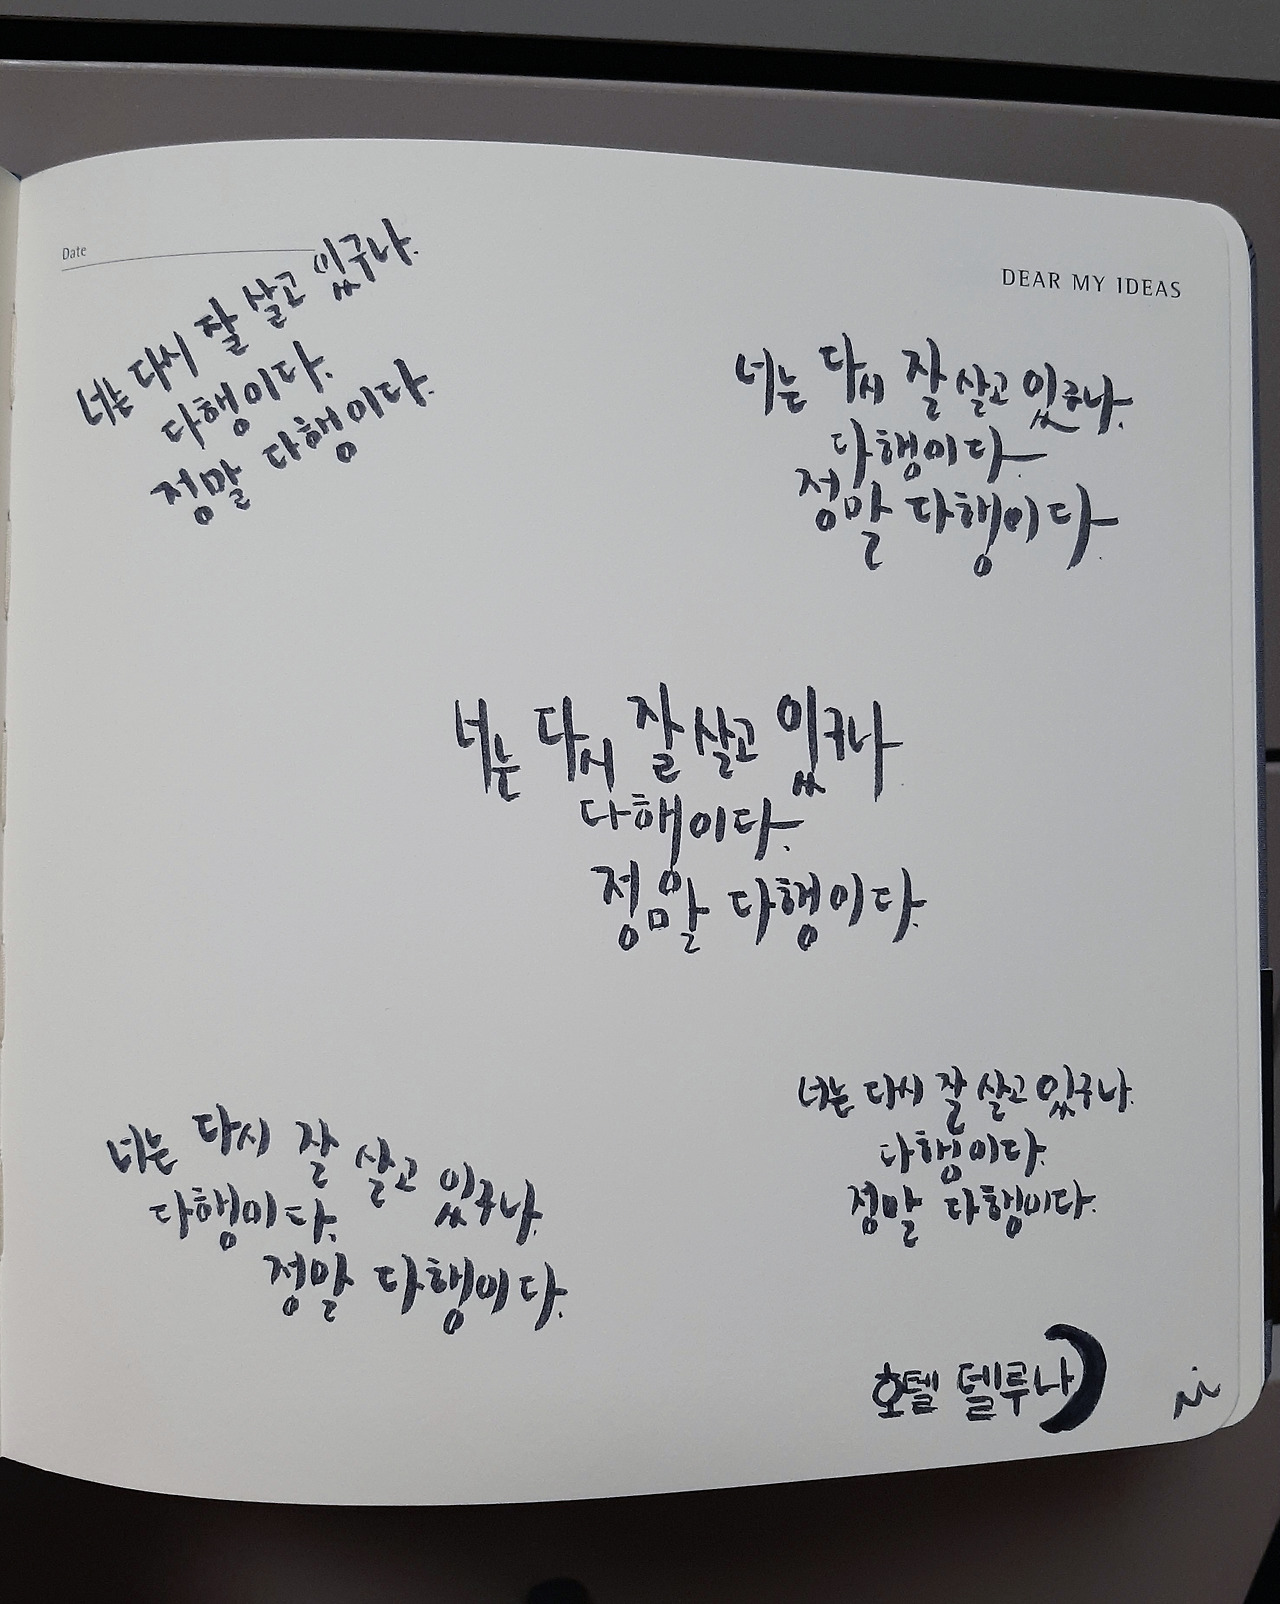 Date
DEAR MY IDEAS
너는 다시 잘 살고 있구나.
다행이다.
정말 다행이다.
너는 다시 잘 살고 있구나.
다행이다.
정말 다행이다.
너는 다시 잘 살고 있구나.
다행이다.
정말 다행이다.
너는 다시 잘 살고 있구나.
다행이다.
정말 다행이다.
너는 다시 잘 살고 있구나.
다행이다.
정말 다행이다.
호텔 델루나